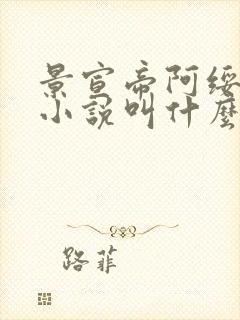 景宣帝阿绥
小說叫什麼
路菲